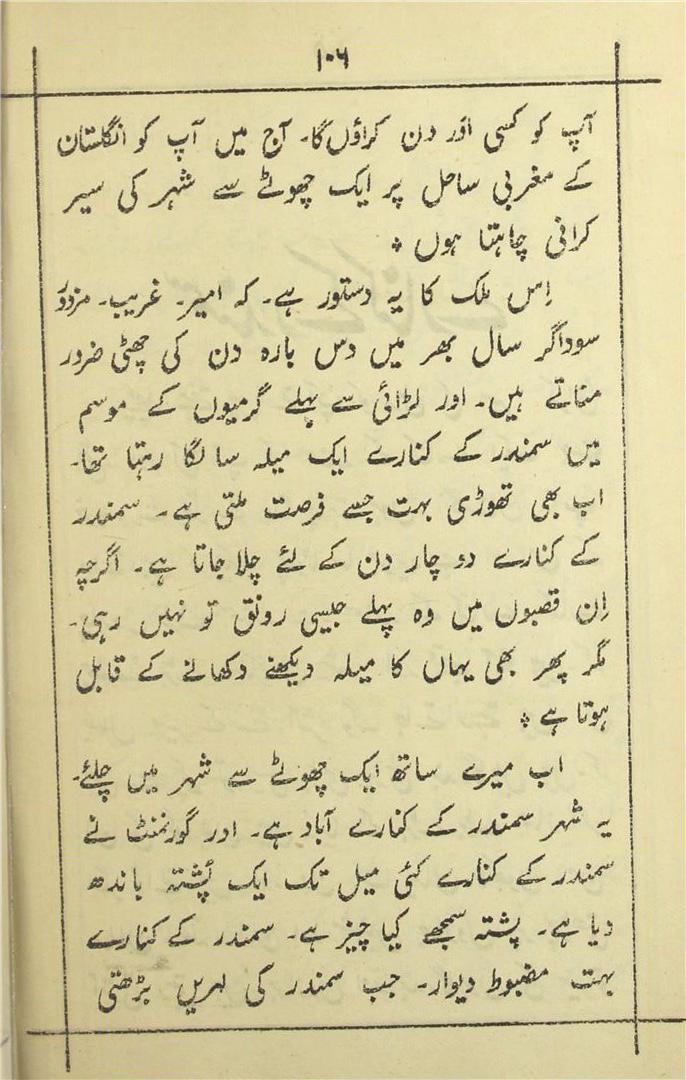 ۱۰۶
آپ کو کسی اور دن کراؤں گا۔ آج میں آپ کو انگلستان
کے مغربی ساحل پر ایک چھوٹے سے شہر کی سیر
کرانی چاہتا ہوں ٭
اِس ملک کا یہ دستور ہے۔ کہ امیر۔ غریب۔ مزدور
سوداگر سال بھر میں دس بارہ دن کی چھٹی ضرور
مناتے ہیں۔ اور لڑائی سے پہلے گرمیوں کے موسم
میں سمندر کے کنارے ایک میلہ سا لگا رہتا تھا۔
اب بھی تھوڑی بہت جسے فرصت ملتی ہے۔ سمندر
کے کنارے دو چار دن کے لئے چلا جاتا ہے۔ اگرچہ
اِن قصبوں میں وہ پہلے جیسی رونق تو نہیں رہی۔
مگر پھر بھی یہاں کا میلہ دیکھنے دکھانے کے قابل
ہوتا ہے ٭
اب میرے ساتھ ایک چھوٹے سے شہر میں چلئے۔
یہ شہر سمندر کے کنارے آباد ہے۔ اور گورنمنٹ نے
سمندر کے کنارے کئی میل تک ایک پُشتہ باندھ
دیا ہے۔ پشتہ سمجھے کیا چیز ہے۔ سمندر کے کنارے
بہت مضبوط دیوار۔ جب سمندر کی لہریں بڑھتی